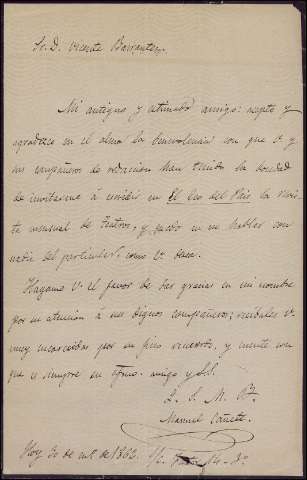 Sr. D. Vicente Barrantes.
Mi antiguo y estimado amigo: acepto y
agradezco en el alma la benevolencia con que V. y
sus compañeros de redaccion han tenido la bondad
de invitarme á escribir en El Eco del Pais la Revis-
ta mensual de Teatros, y quedo en no hablar con
nadie del particular, como V. desea.
Hágame V. el favor de dar gracias en mi nombre
por su atencion á sus dignos compañeros; recíbalas V.
muy encarecidas por su fino recuerdo, y cuente con
que es siempre su afmo. amigo y
Q. S. M. B.
Manuel Cañete
Hoy 30 de 1862. S/c